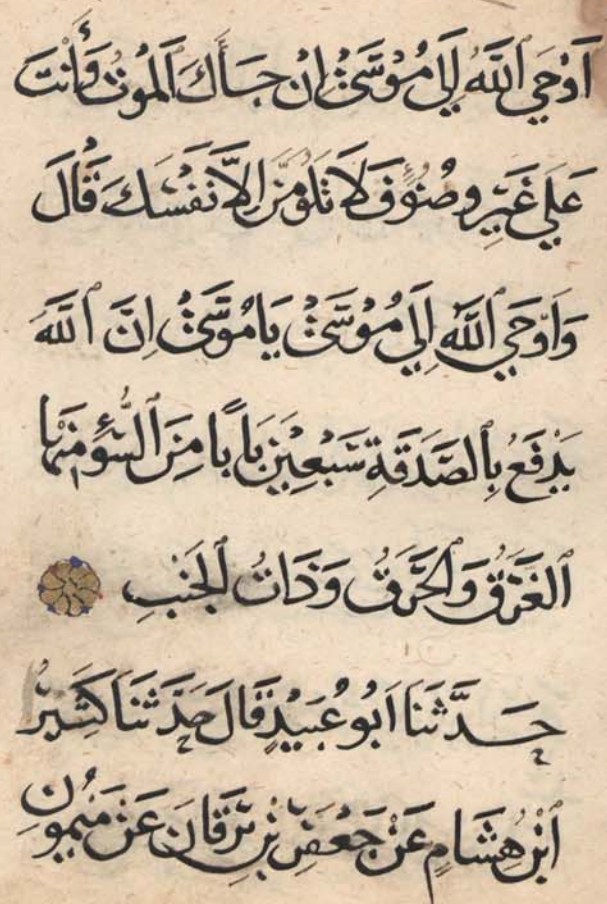 اَوْحَي ٱللَّهُ اِلَى مُوْسَىْ اِنْ جَاۤأَكَ ٱلْمَوْتُ وَأَنْتَ
عَلَي غَيْرِ وُضُوْءٍ فَلَا تَلُوْمَنَّ اِلَّا نَفْسَكَ قَالَ
وَاَوْحَي ٱللَّهُ اِلَي مُوْسَىْ يَا مُوْسَىْ اِنَّ ٱللَّهَ
يَدْفَعُ بِٱلصَّدَقَةِ سَبْعِيْنَ بَابًا مِنَ ٱلسُّوْءِ مِنْهَا
ٱلْغَرَقُ وَٱلْحَرَقُ وَذَاتُ ٱلْجَنْبِ
حَدَّثَنَا اَبُو عُبَيْدٍ قَالَ حَدَّثَنَا كَثِيْرُ
ٱبْنُ هِشَامٍ عَنْ جَعْفَرِ بْنِ بُرْقَانَ عَنْ مَيْمُوْنِ